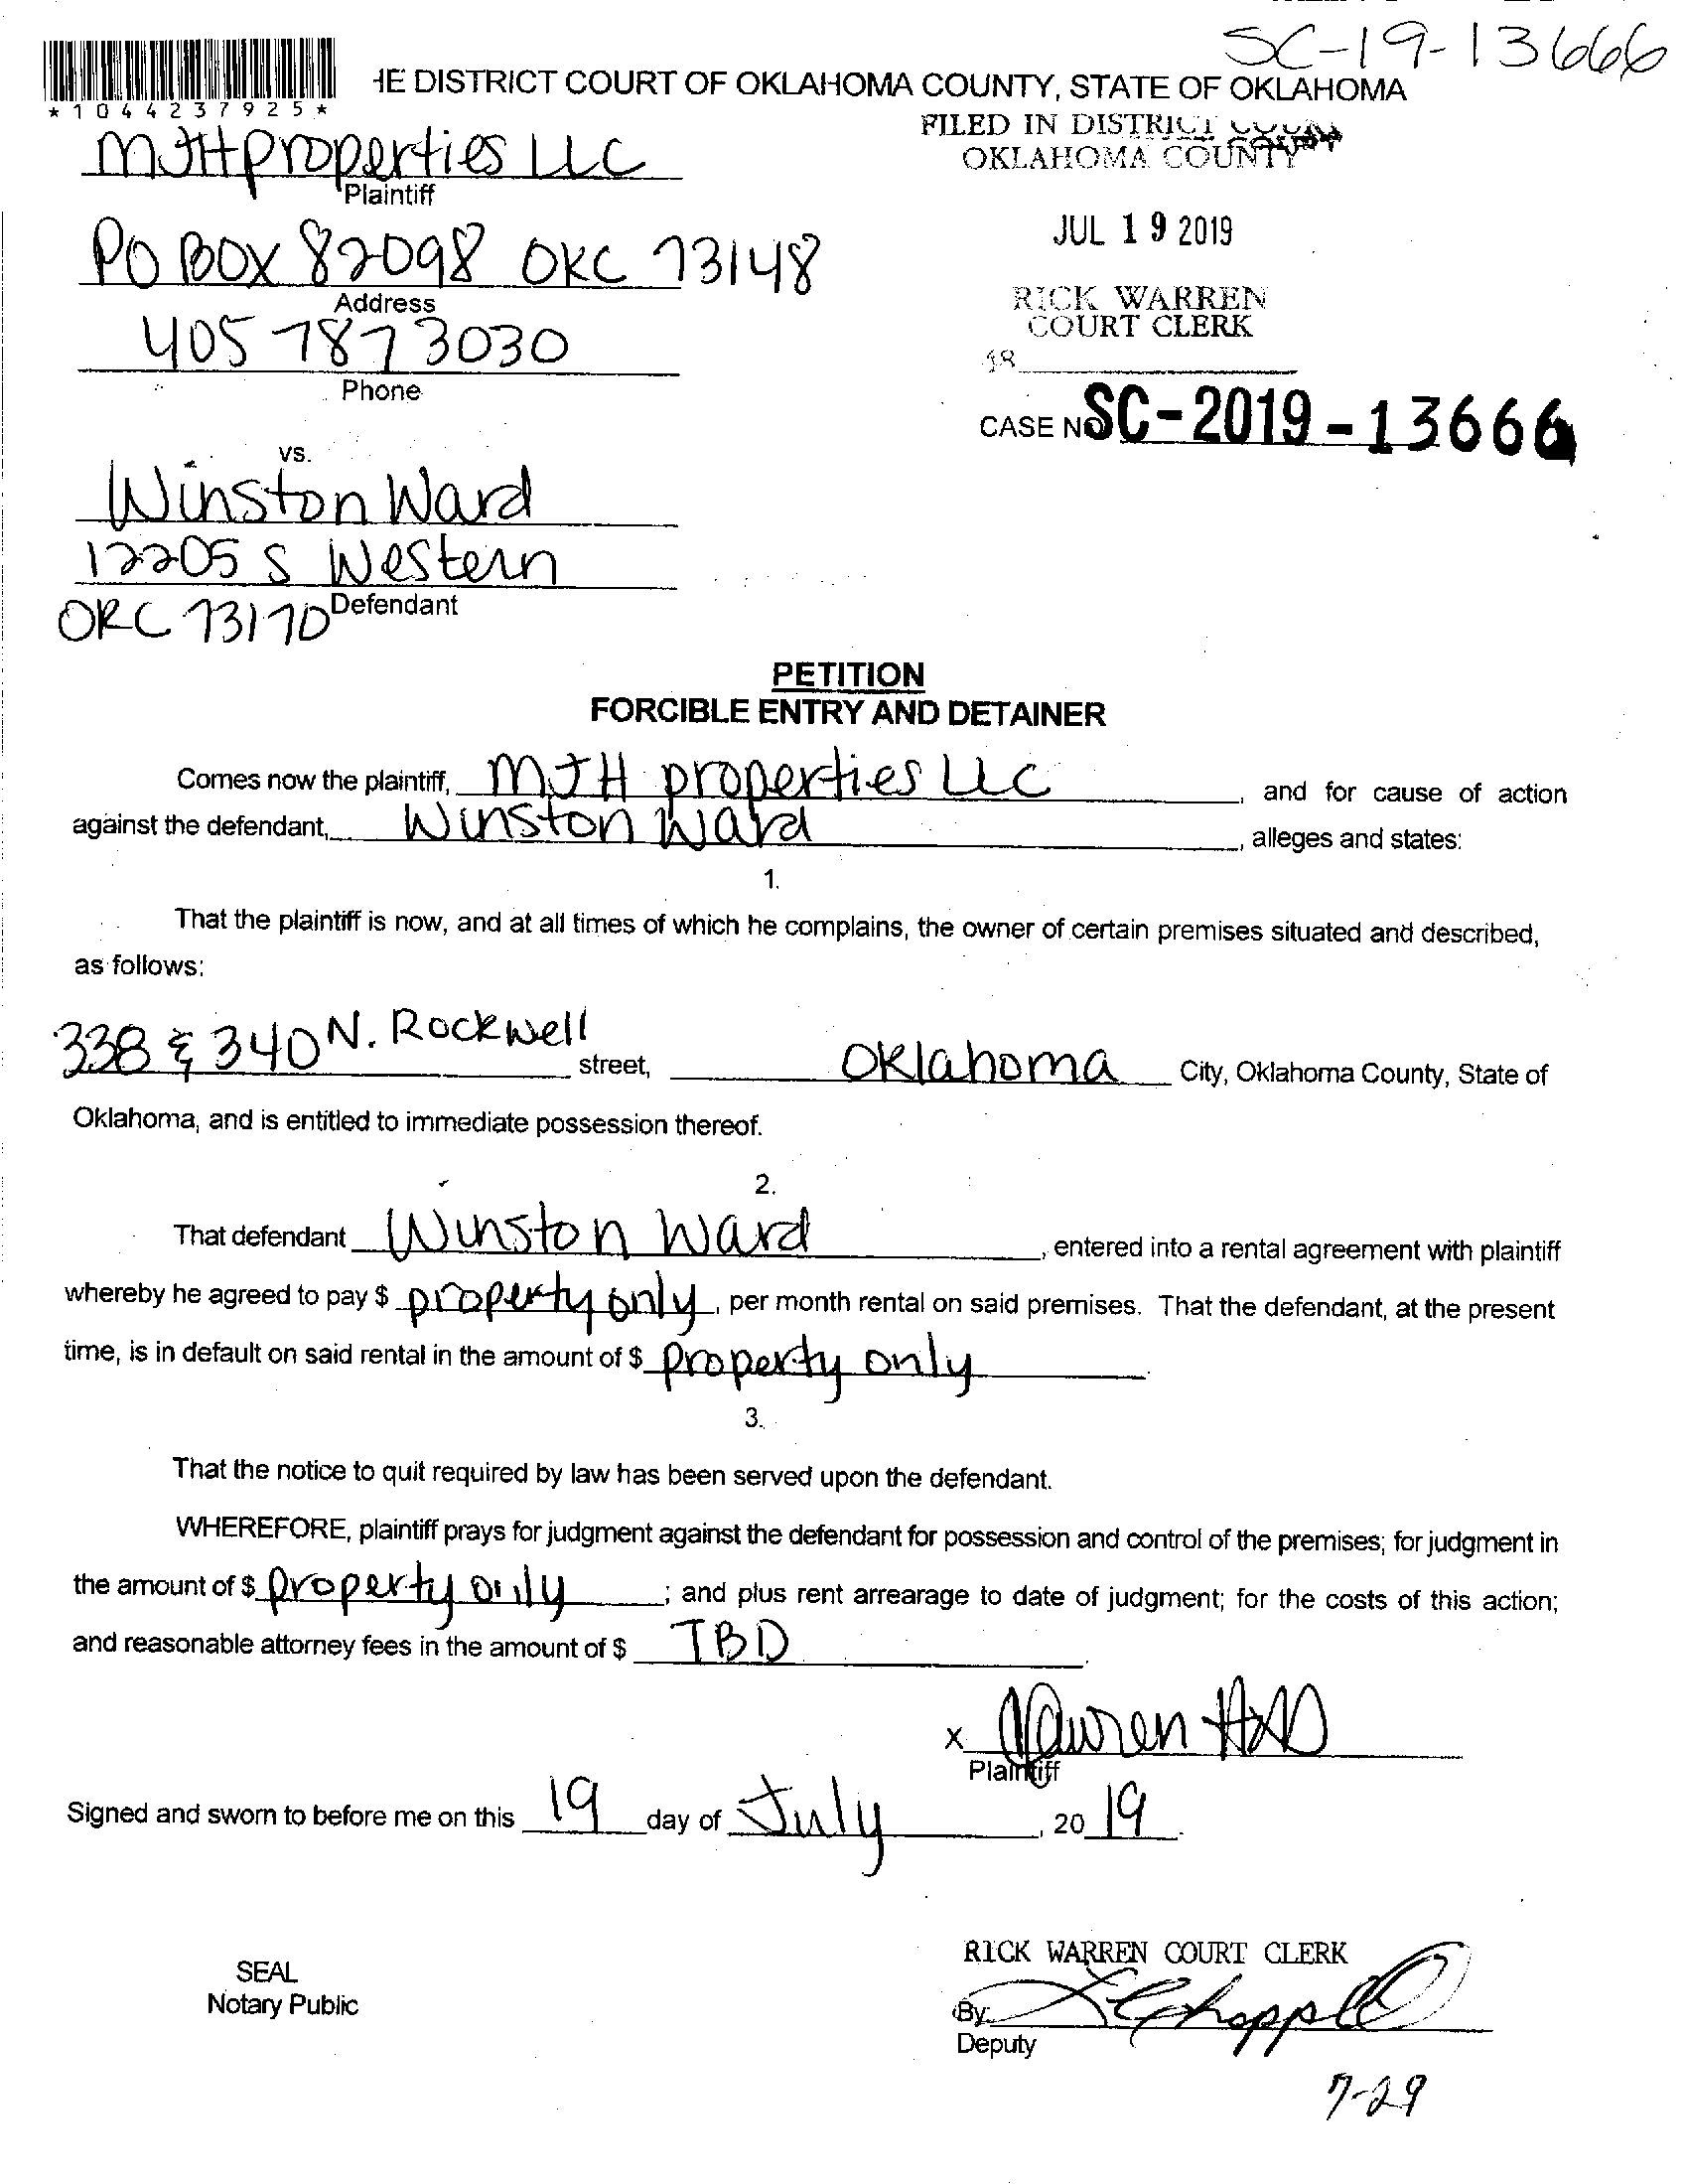 SC-19-13666
*1044237925*
HE DISTRICT COURT OF OKLAHOMA COUNTY, STATE OF OKLAHOMA
FILED IN DISTRICT COURT
OKLAHOMA COUNTY
MJH properties LLC
Plaintiff
JUL 19 2019
PO BOX 82098 OKC 73148
Address
RICK WARREN
COURT CLERK
405 787 3030
Phone
CASE NO SC-2019-13666
vs.
Winston Ward
12205 S Western
Defendant
OKC 73170
PETITION
FORCIBLE ENTRY AND DETAINER
Comes now the plaintiff, MJH properties LLC, and for cause of action
against the defendant, Winston Ward, alleges and states:
1.
That the plaintiff is now, and at all times of which he complains, the owner of certain premises situated and described,
as follows:
338 & 340 N. Rockwell street, Oklahoma City, Oklahoma County, State of
Oklahoma, and is entitled to immediate possession thereof.
2.
That defendant Winston Ward, entered into a rental agreement with plaintiff
whereby he agreed to pay $ property only, per month rental on said premises. That the defendant, at the present
time, is in default on said rental in the amount of $ property only.
3.
That the notice to quit required by law has been served upon the defendant.
WHEREFORE, plaintiff prays for judgment against the defendant for possession and control of the premises; for judgment in
the amount of $ property only; and plus rent arrearage to date of judgment; for the costs of this action;
and reasonable attorney fees in the amount of $ TBD.
X
Plaintiff
Signed and sworn to before me on this 19 day of July, 2019.
RICK WARREN COURT CLERK
SEAL
Notary Public
By:
Deputy
7-29